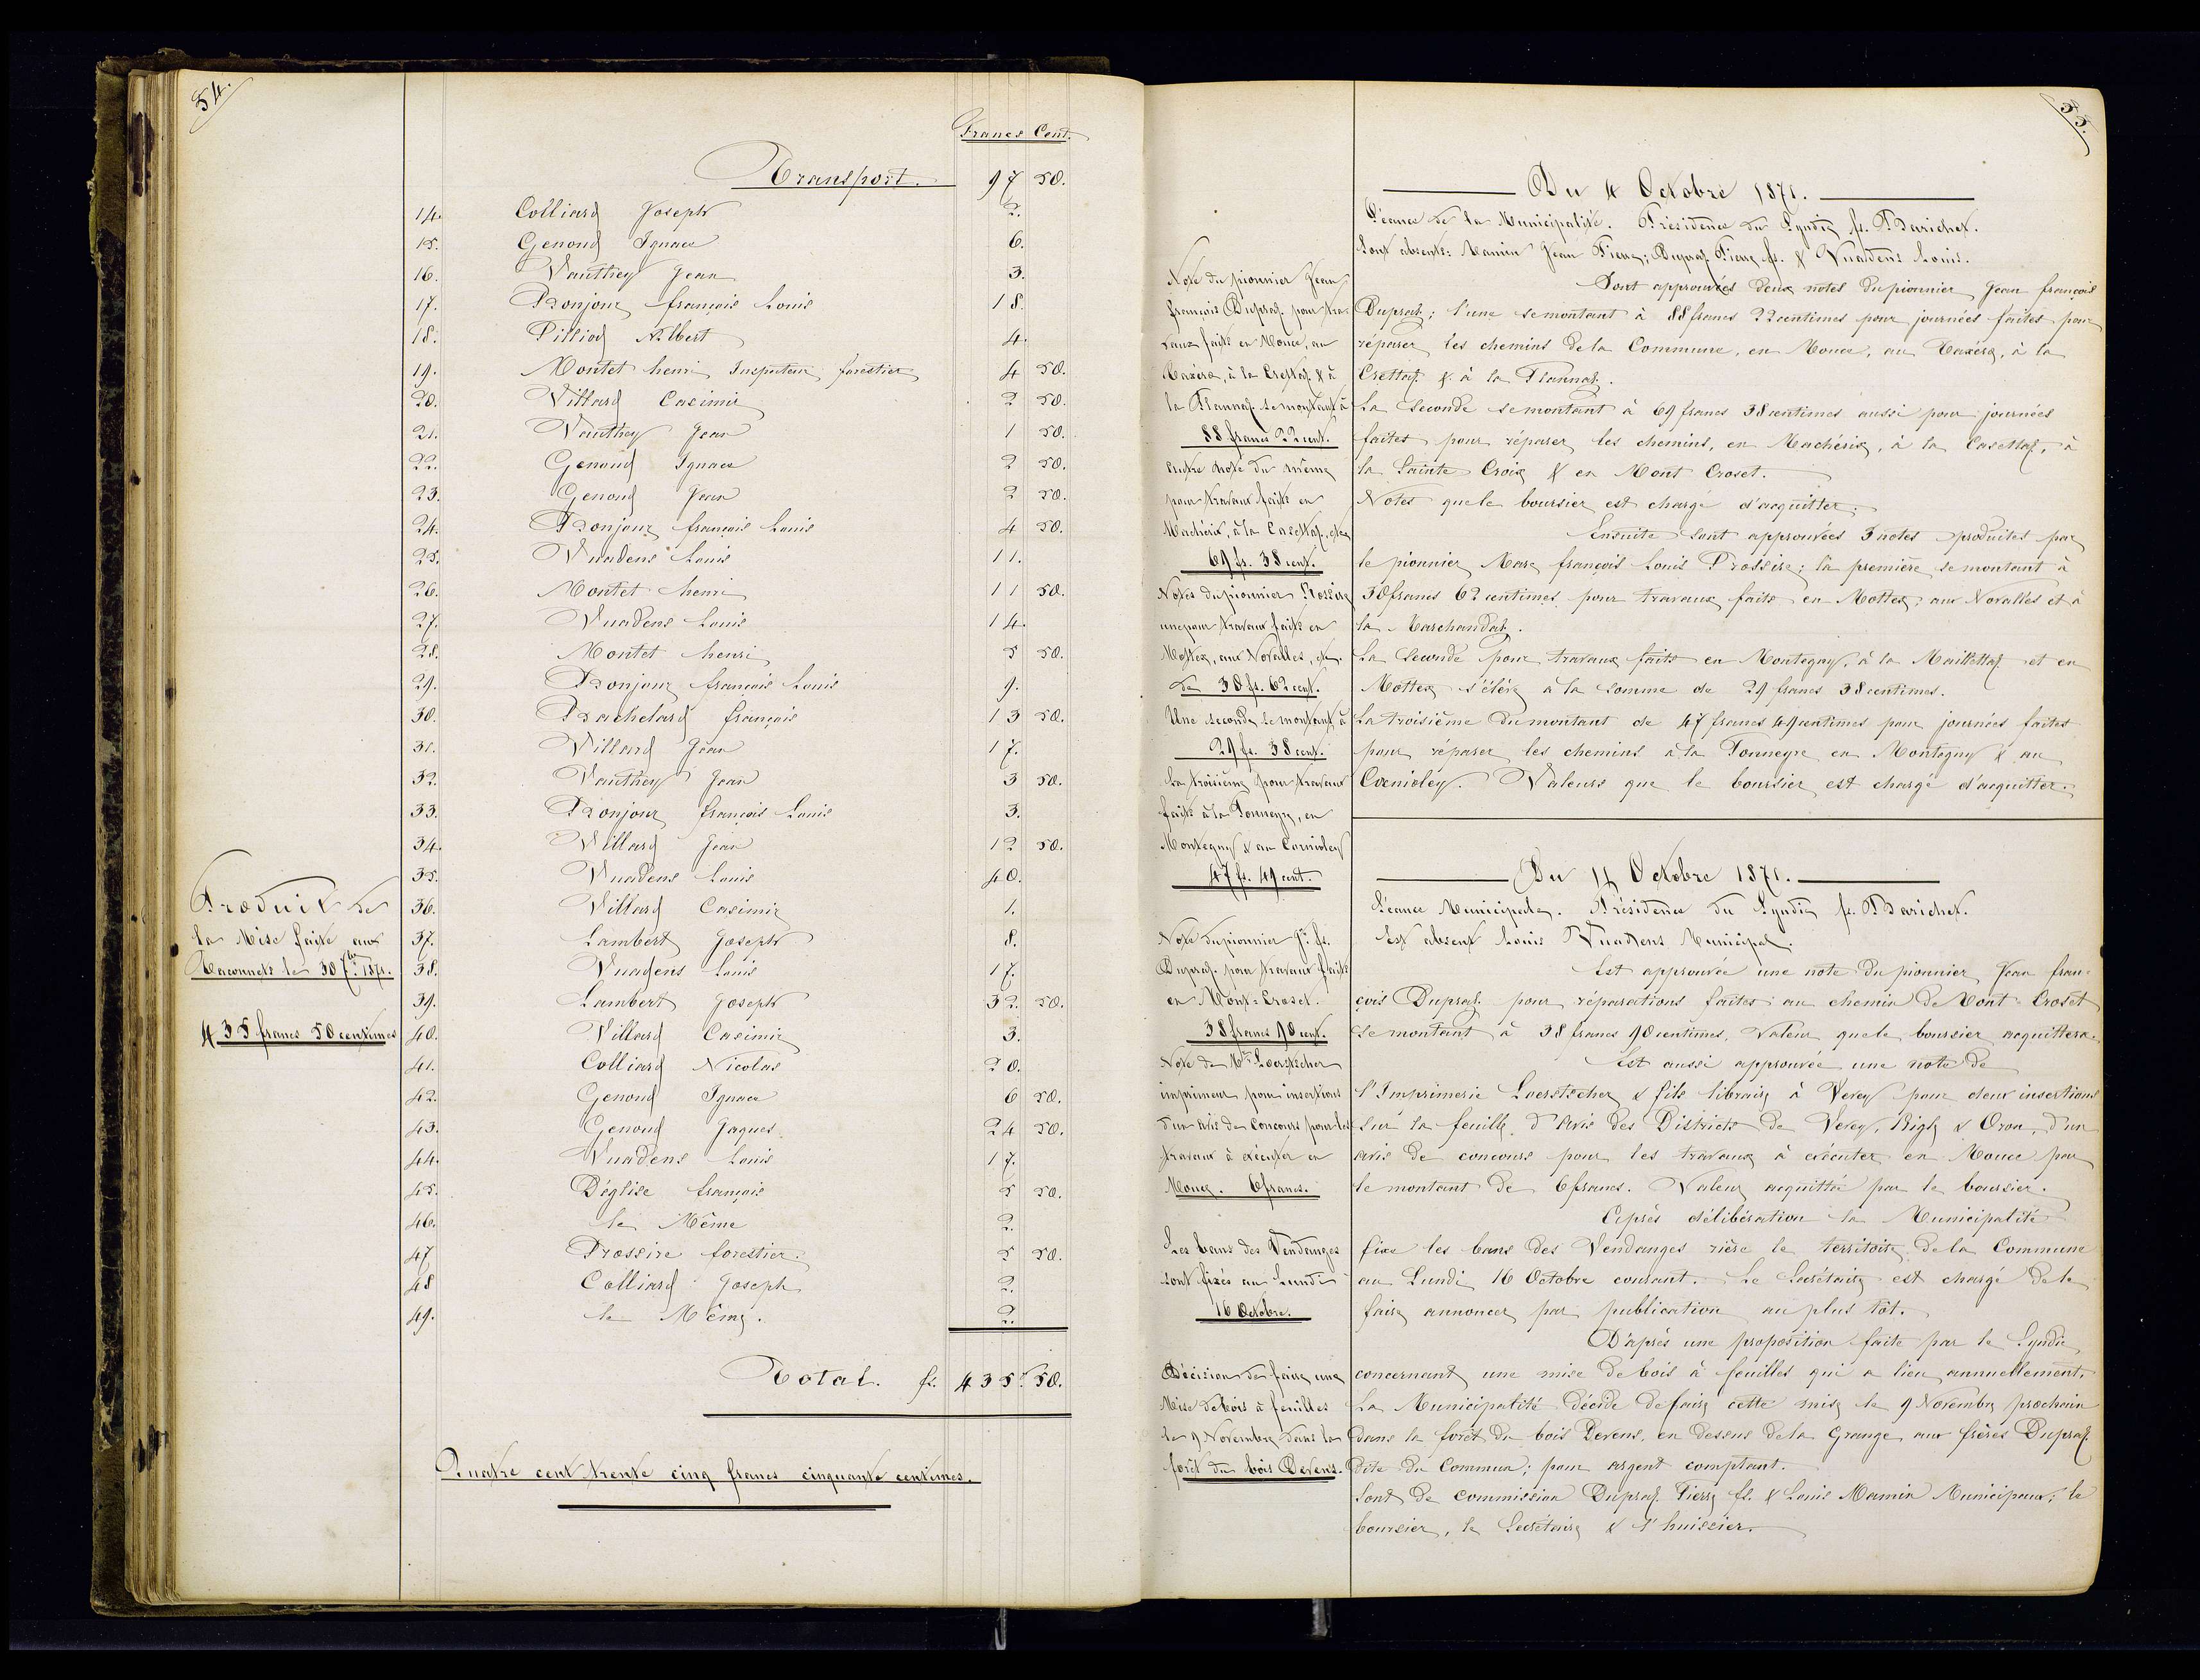 54.
Francs Cent.
Transport. 97 50.
14. Colliard Joseph 2.
15. Genoud Ignace 6.
16. Vauthey Jean 3.
17. Bonjour françois Louis 18.
18. Pilliod Albert 4.
19. Montet henri Inspecteur forestier 4 50.
20. Villard Casimir 2 50.
21. Vauthey Jean 1 50.
22. Genoud Ignace 2 50.
23. Genoud Jean 2 50.
24. Bonjour françois Louis 4 50.
25. Vuadens Louis 11.
26. Montet henri 11 50.
27. Vuadens Louis 14.
28. Montet henri 5 50.
29. Bonjour françois Louis 9.
30. Bachelard françois 13 50.
31. Villard Jean 17.
32. Vauthey Jean 3 50.
33. Bonjour françois Louis 3.
34. Villard Jean 12 50.
35. Vuadens Louis 40.
36. Villard Casimir 1.
37. Lambert Joseph 8.
38. Vuadens Louis 17.
39. Lambert Joseph 32 50.
40. Villard Casimir 3.
41. Colliard Nicolas 20.
42. Genoud Ignace 6 50.
43. Genoud Jaques 24 50.
44. Vuadens Louis 17.
45. Déglise françois 5 50.
46. le Même 2.
47 Prossire forestier. 5 50.
48 Colliard Joseph 2.
49. le Même. 2.
Total. fs. 435. 50.
Quatre cent trente cinq francs cinquante centimes.
Produit de
la Mise faite aux
le 30 7bre 1871.
435 francs 50 centimes
55.
Du 4 Octobre 1871.
Séance de la Municipalité. Présidence du Syndic fs. Barichet.
Sont absents: Mamin Jean Pierre; Dupraz Pierre fs. & Vuadens Louis.
Sont approuvées deux notes du pionnier Jean françois
Dupraz; l'une se montant à 88 francs 22 centimes pour journées faites pour
réparer les chemins de la Commune, en Mouce, au à la
Crettaz & à la Plannaz.
La Seconde se montant à 69 francs 38 centimes aussi pour journées
faites pour réparer les chemins, en Machérix, à la Casettaz, à
la Sainte Croix & en Mont Croset.
Notes que le boursier est chargé d'acquitter.
Ensuite sont approuvées 3 notes produites par
le pionnier Marc françois Louis Prossire; la première se montant à
38 francs 62 centimes pour travaux faits en Mottex, aux Novalles et à
la Marchandaz.
La Seconde pour travaux faits en Montegny, à la Maillettaz et en
Mottex s'élève à la somme de 29 francs 38 centimes.
La troisième du montant de 47 francs 49 centimes pour journées faites
pour réparer les chemins à la Tonneyre en Montegny & au
Cornioley. Valeurs que le boursier est chargé d'acquitter.
Note du pionnier Jean
françois Dupraz pour tra-
vaux faits en Mouce, au
à la Crettaz & à
la Plannaz se montant à
88 francs 22 cent.
autre note du même
pour travaux faits en
Machérix, à la Casettaz, etc
69 fs. 38 cent.
Notes du pionnier Prossire
une pour travaux faits en
Mottex, aux Novalles, etc.
de 38 fs. 62 cent.
Une seconde se montant à
29 fs. 38 cent.
la troisième pour travaux
faits à la Tonneyre, en
Montegny & au Cornioley
47 fs. 49 cent.
Du 14 Octobre 1871.
Séance Municipale. Présidence du Syndic fs. Barichet.
Est absent Louis Vuadens Municipal.
Est approuvée une note du pionnier Jean fran-
çois Dupraz pour réparations faites au chemin de Mont-Croset
se montant à 38 francs 90 centimes, Valeur que le boursier acquittera.
Est aussi approuvée une note de
l'Imprimerie Loertscher & fils libraire à Vevey pour deux insertions
sur la feuille d'Avis des Districts de Vevey, Aigle & Oron, d'un
avis de concours pour les travaux à exécuter en Mouce par
le montant de 6 francs. Valeur acquittée par le boursier.
Après délibération la Municipalité
fixe les bans des Vendanges rière le territoire de la Commune
au Lundi 16 Octobre courant. Le Secrétaire est chargé de le
faire annoncer par publication au plus tôt.
D'après une proposition faite par le Syndic
concernant une mise de bois à feuilles qui a lieu annuellement.
La Municipalité décide de faire cette mise le 9 Novembre prochain
dans la forêt du bois Devens, en dessus de la Grange aux frères Dupraz
dite du Commun; pour argent comptant.
Sont de commission Dupraz Pierre fs. & Louis Mamin Municipaux; le
boursier, le Secrétaire & l'huissier.
Note du pionnier Jn. fs.
Dupraz pour travaux faits
en Mont-Croset.
38 francs 90 cent.
Note de Mr. Loertscher
imprimeur pour insertions
d'un Avis de Concours pour les
travaux à exécuter en
Mouce. 6 francs.
Les bans des Vendanges
sont fixés au Lundi
16 Octobre.
Décision de faire une
Mise de bois à feuilles
le 9 Novembre dans la
forêt du bois Devens.